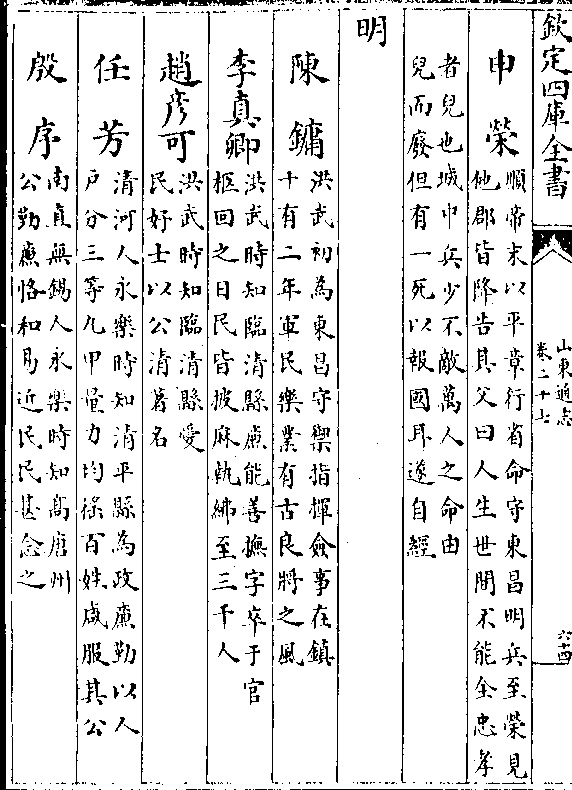 欽定四庫全書
山東通志
卷二十七
六十四
申榮
順帝末以平章行省命守東昌明兵至榮見
他郡皆降告其父曰人生世間不能全忠孝
者兒也城中兵少不敵萬人之命由
兒而廢但有一死以報國耳遂自經
明
陳鏞
洪武初為東昌守禦指揮僉事在鎮
十有二年軍民樂業有古良將之風
李真卿
洪武時知臨清縣慮能善撫字卒于官
柩回之日民皆披麻執紼至三千人
趙彦可
洪武時知臨清縣愛
民好士以公清著名
任芳
清河人永樂時知清平縣為政廉勤以人
戸分三等九甲量力均徭百姓咸服其公
殷序
南直無錫人永樂時知髙唐州
公勤廉恪和易近民民甚念之